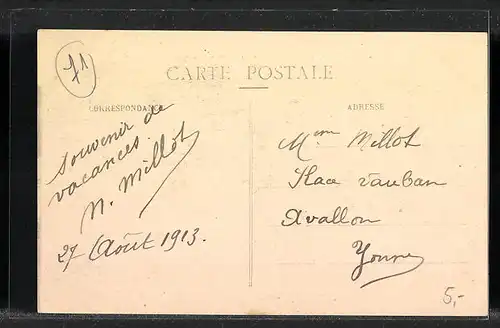 71
CARTE POSTALE
CORRESPONDANCE
Souvenir de
vacances.
N. Millot
27 Août 1913.
ADRESSE
Mme Millot
Place Vauban
Avallon
Yonne
5,-